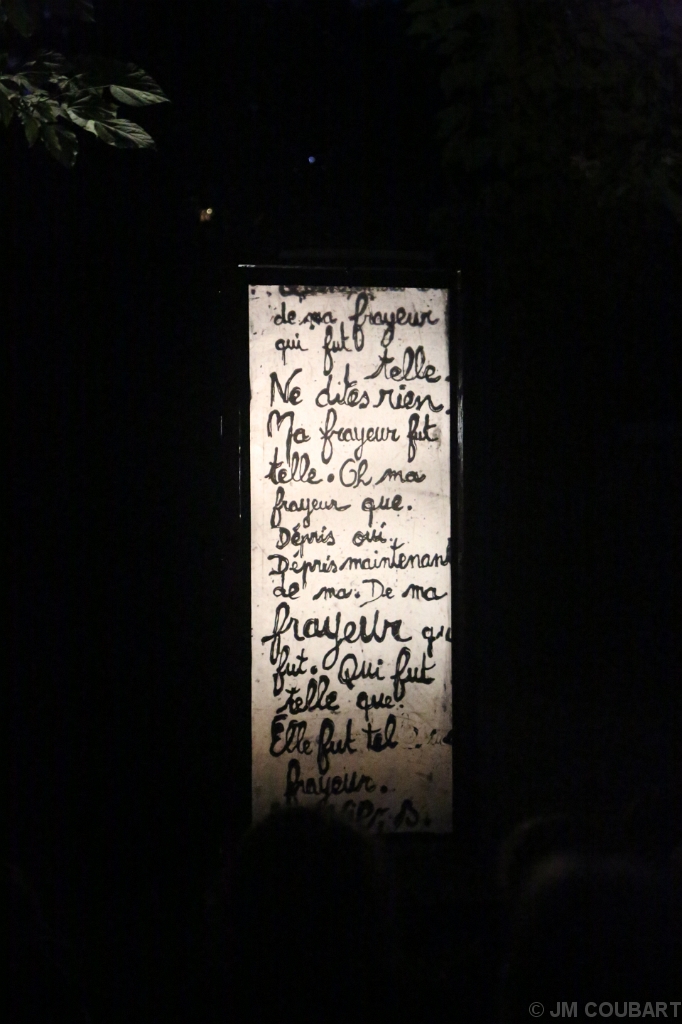 de ma frayeur
qui fut
telle.
Ne dites rien.
Ma frayeur fut
telle. Oh ma
frayeur que.
Dépris oui.
Dépris maintenant
de ma. De ma
frayeur qui
fut. Qui fut
telle que.
Elle fut tel
frayeur.
© JM COUBART